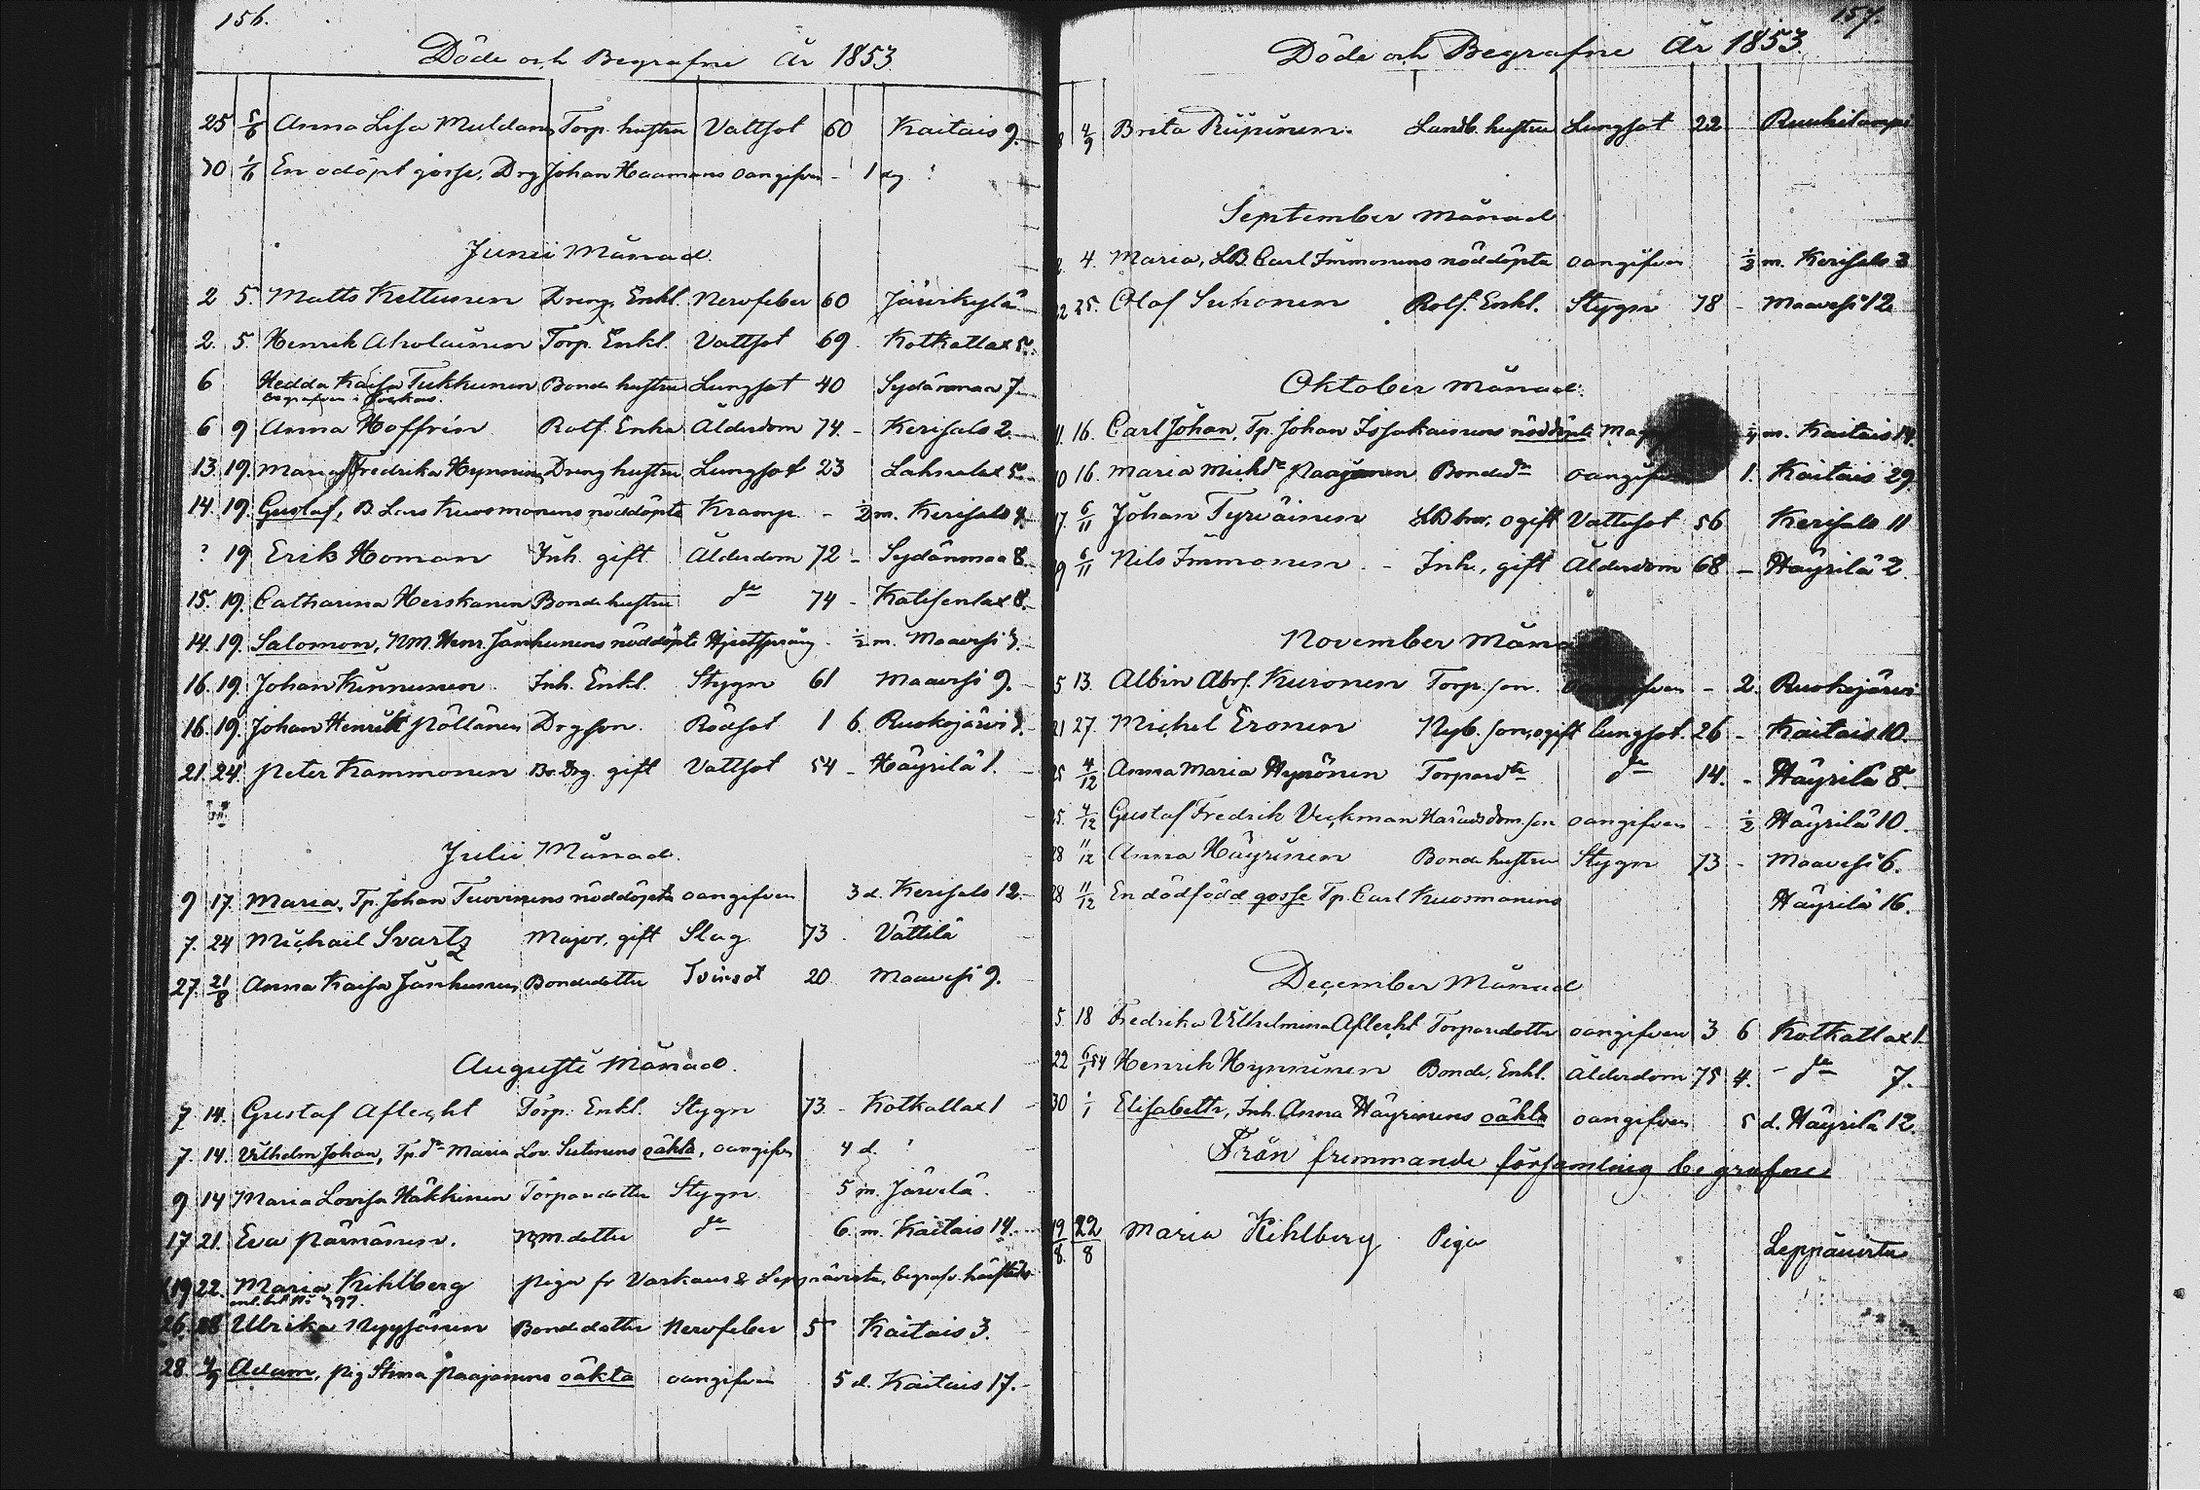 156.
Döde och Begrafne År 1853
25 5/6 Anna Lisa Muldans Torp. hustru Vattsot 60 Kaitais 9.
30 En odöpt gosse, Drg Johan Haamans oangifven - 1 dg
Junii Månad
2 5. Matts Kettunen Dreng, Enkl. Nervfeber 60 Järvikylä
2. 5. Henrik Aholainen Torp. Enkl. Vattsot 69. Kotkatlax 5.
6 Hedda Kaisa Tukkunen Bonde hustru Lungsot 40 Sydänmaa 7.
begrafven i Jorkas.
6 9 Anna Hoffrén Rotf. Enka Ålderdom 74. - Kerisalo 2.
13. 19. Maria Fredrika Hynninen Dreng hustru Lungsot 23 Lahnalax 5.
14. 19. Gustaf, B. Lars Kuosmanens nöddöpta Kramp - ½ m. Kerisalo
? 19 Erik Homan Inh. gift Ålderdom 72 - Sydänmaa 8.
15. 19. Catharina Herskanen Bonde hustru do 74 - Katisenlax 8.
14. 19. Salomon, NM. Henr. Jänhunens nöddöpte Hjertsprång ½ m. Maavesi 3.
16. 19. Johan Kinnunen Inh. Enkl. Stygn 61 Maavesi 9.
16. 19. Johan Henrik Pöllänen Drg son. Rödsot 1 6. Ruokojärvi 3.
21. 24. Peter Kammonen Bo. Drg. gift Vattsot 54 - Häyrilä 1.
Julii Månad.
9 17. Maria, Tp. Johan Tuovinens nöddöpta oangifven 3 d. Kerisalo 12
7. 24 Michail Svartz Major, gift Slag 73. Vättilä
27. 21/8 Anna Kaisa Jänhunen, Bondedotter Tvinsot 20 Maavesi 9.
Augusti Månad.
7 14. Gustaf Aflecht Torp. Enkl. Stygn 73. - Kotkallax 1
7. 14. Vilhelm Johan, Tp. dr Maria Lov. Sutinens oäkta, oangifv 4 d.
9 14 Maria Lovisa Häkkinen Torparedotter Stygn 5 m. Järvelä.
17 21. Eva Pärnänen. NM. dotter do 6. m. Kaitais 14.
19 22. Maria Kihlberg piga fr Varkaus & Leppävirta, begrafv. härstädes
enl. bet. No 397.
26. 28 Ulrika Nyyssönen Bondedotter Nervfeber 5 Kaitais 3.
28. 4/9 Adam, pig Stina Paajanens oäkta oangifven 5 d. Kaitais 17.
157.
Döde och Begrafne År 1853.
4/9 Brita Riipinen. Landb. hustru Lungsot 22 Ruuhilampi
September Månad
4. Maria, LB. Carl Immonens nöddöpta oangifven ½ m. Kerisalo 3
22 25. Olof Suhonen Rotf. Enkl. Stygn 78 - Maavesi 12
Oktober Månad.
11. 16. Carl Johan, Tp. Johan Issakainens nöddöpte Mag ¼ m. Kaitais 14.
10 16. Maria Michdr Paajanen Bondedr oangifven 1. Kaitais 29.
17. 6/11 Johan Tyrväinen LB bror, ogift Vattusot 56 Kerisalo 11
19 6/11 Nils Immonen - Inh., gift Ålderdom 68 - Häyrilä 2.
November Måna
5 13. Albin Abrs. Kuronen Torp. son. - 2. Ruokojärvi
21 27. Michel Eronen Nyb. son, ogift lungsot. 26 - Kaitais 10.
25 4/12 Anna Maria Hynönen Torparedtr do 14. - Häyrilä 8.
25. 4/12 Gustaf Fredrik Veckman Häradsdom. son oangifven - ½ Häyrilä 10.
28 11/12 Anna Häyrinen Bonde hustru Stygn 73 - Maavesi 6.
28 11/12 En dödfödd gosse Tp. Carl Kuosmanens Häyrilä 16.
December Månad
5. 18 Fredrika Vilhelmina Aflecht Torparedotter oangifven 3 6 Kotkatlax 1.
22 6/1 54 Henrik Hynninen Bonde, Enkl. Ålderdom 75 4. - do 7.
30 1/1 Elisabeth, Inh. Anna Häyrinens oäkta oangifven 5 d. Häyrilä 12.
Från fremmande församling begrafne.
19/8. 22/8 Maria Kihlberg Piga Leppävirta